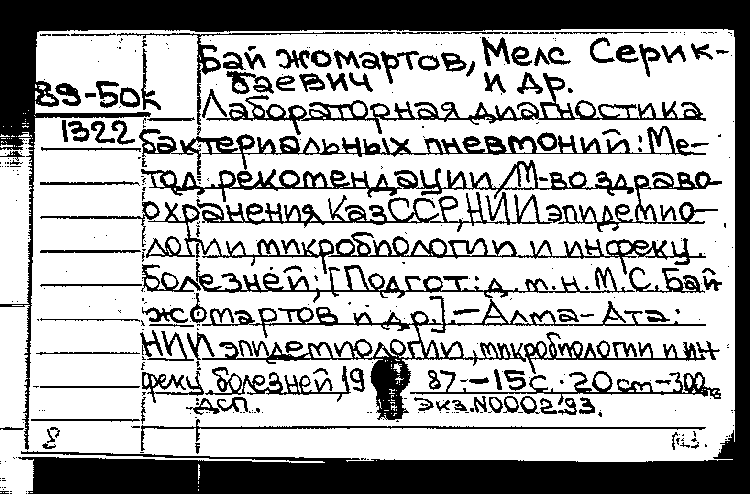 Байжомартов, Мелс Серик-
баевич и др.
89-50к
Лабораторная диагностика
1322
бактериальных пневмоний: Ме-
тод. рекомендации / М-во здраво-
охранения КазССР, НИИ эпидемио-
логии, микробиологии и инфекц.
болезней; [Подгот.: д. м. н. М. С. Бай
жомартов и др.]. — Алма-Ата:
НИИ эпидемиологии, микробиологии и ин
фекц. болезней, 1987. — 15 с. 20 см — 300
ДСП. экз. N000293.
8